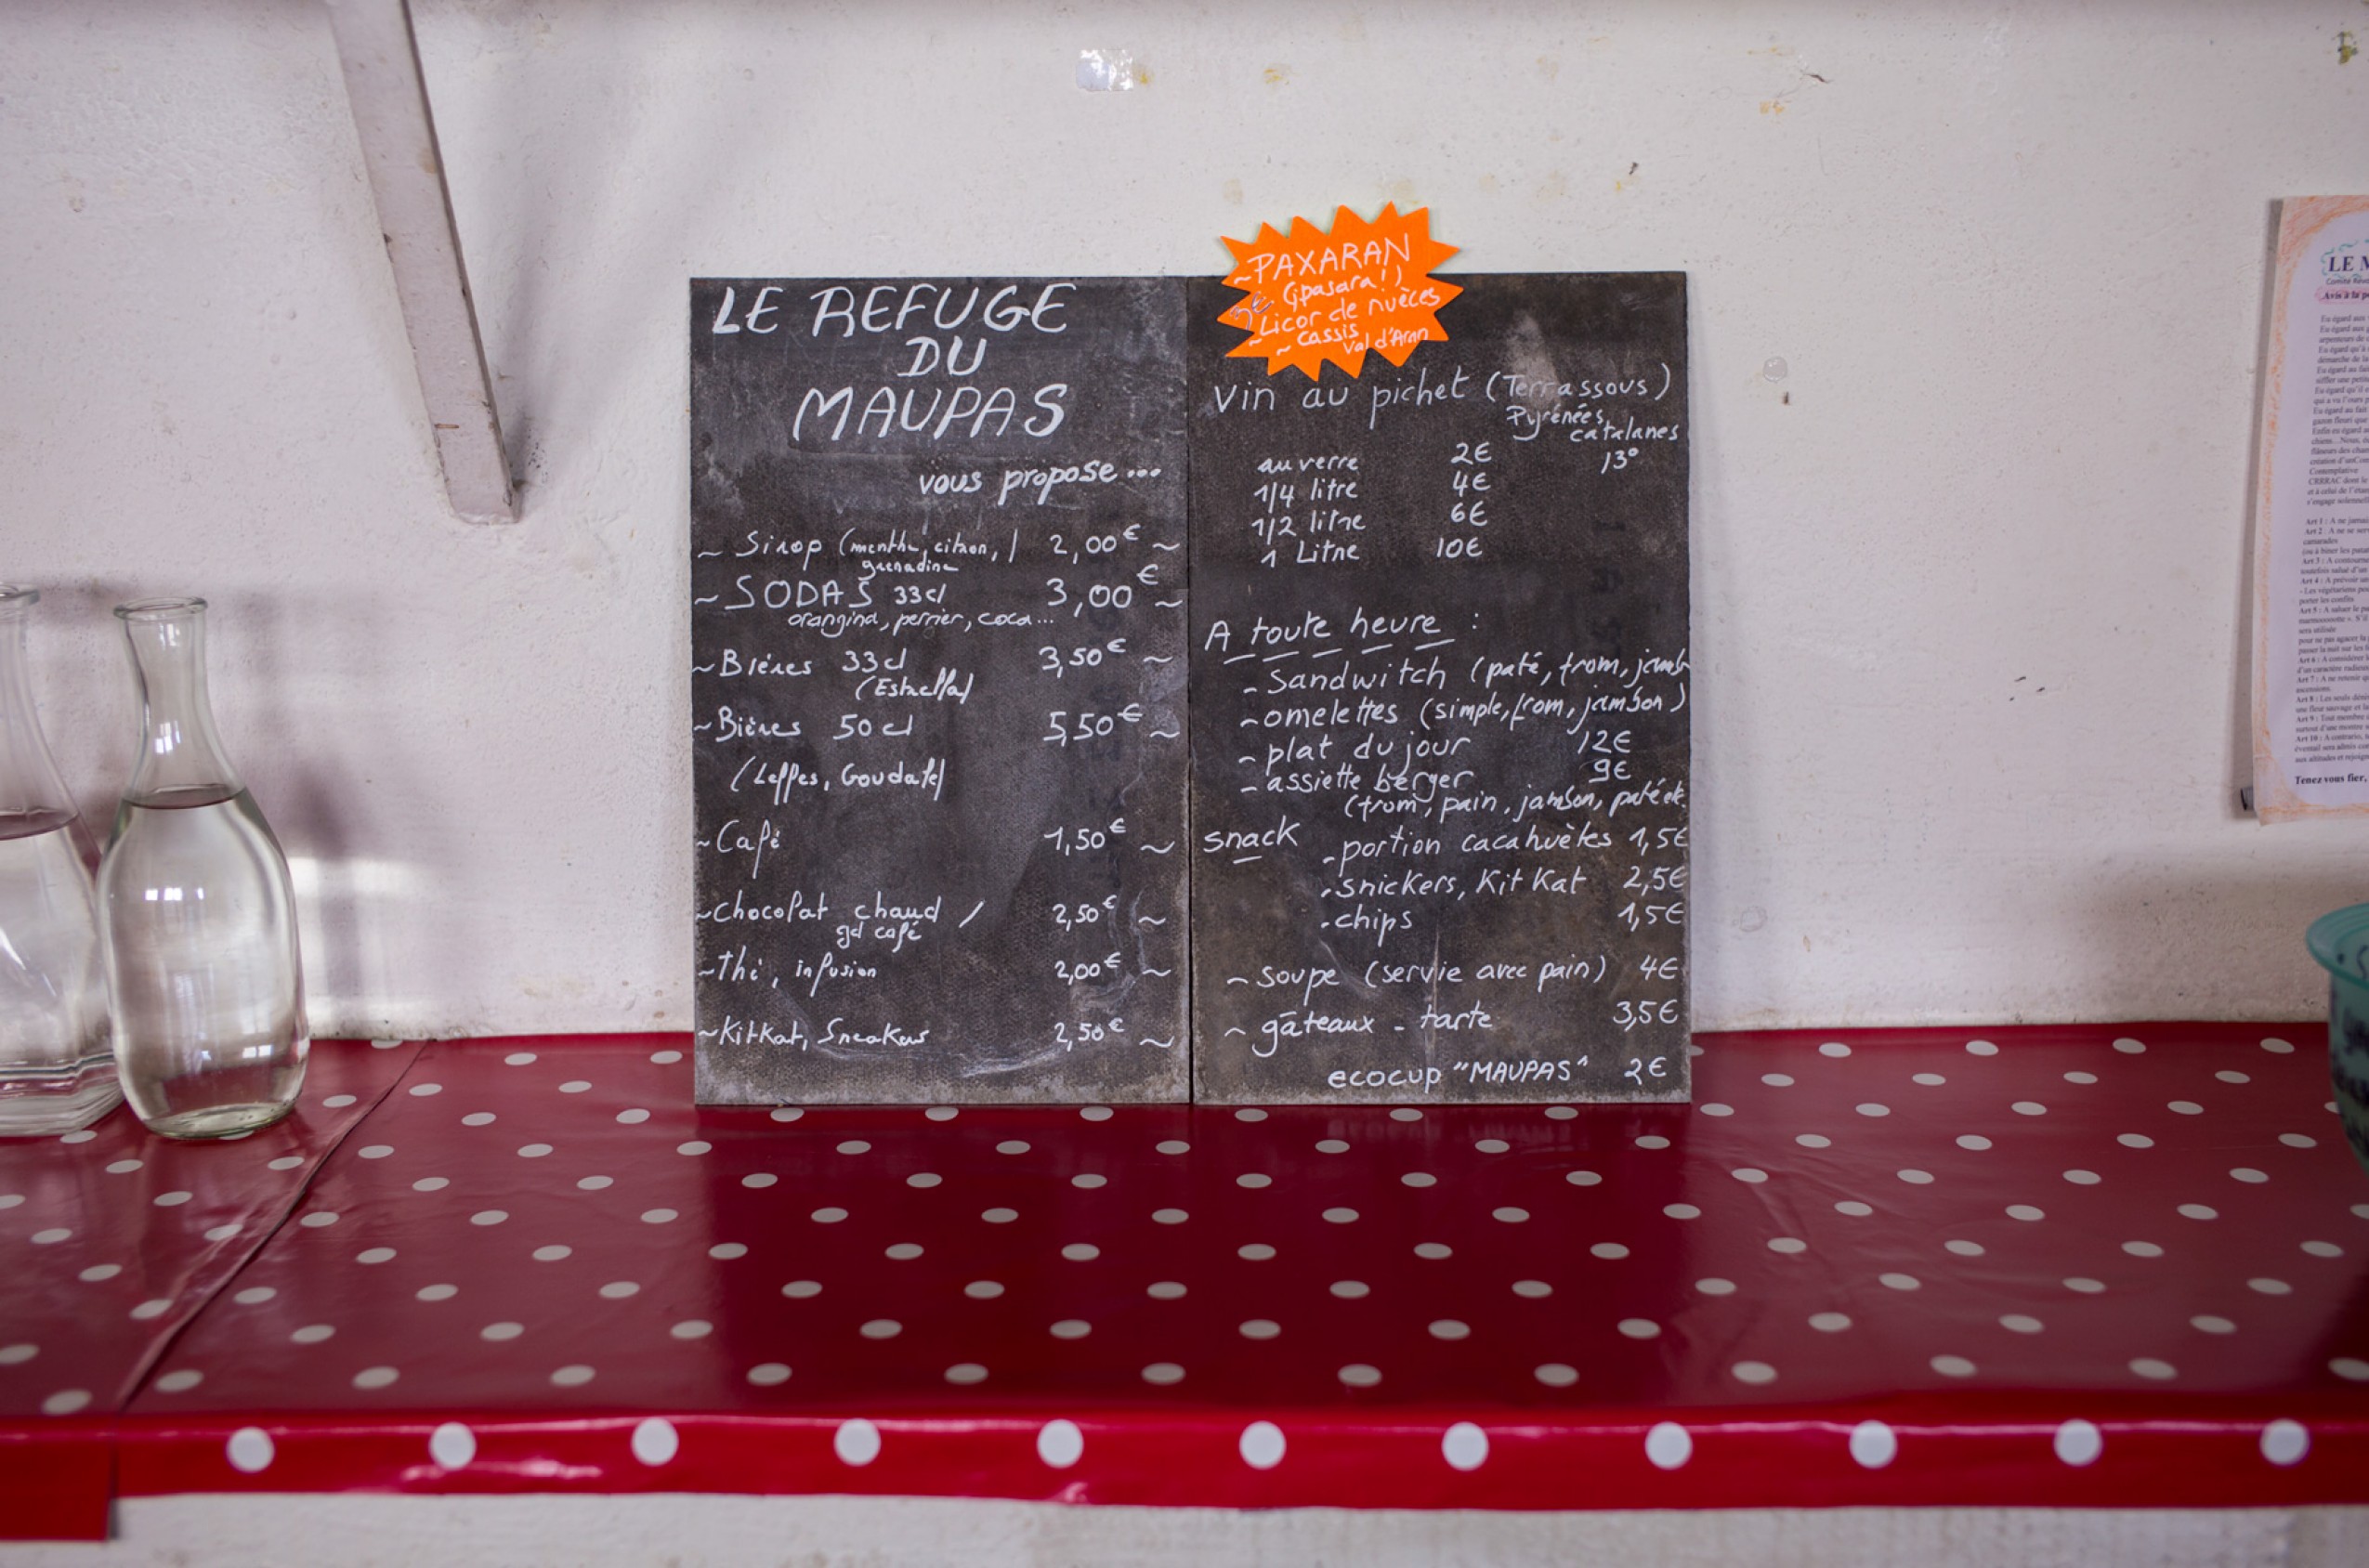 LE REFUGE
DU
MAUPAS
vous propose...
~ Sirop (menthe, citron, / 2,00€ ~
grenadine
~ SODAS 33cl 3,00€ ~
orangina, perrier, coca...
~ Bières 33cl 3,50€ ~
(Estrella)
~ Bières 50cl 5,50€ ~
(Leffes, Goudale)
~ Café 1,50€ ~
~ Chocolat chaud / 2,50€ ~
gd café
~ Thé, infusion 2,00€ ~
~ KitKat, Sneakers 2,50€ ~
~ PAXARAN
(¡pasara!)
3€
~ Licor de nuèces
~ cassis
Val d'Aran
Vin au pichet (Terrassous)
Pyrénées
catalanes
au verre 2€ 13°
1/4 litre 4€
1/2 litre 6€
1 Litre 10€
A toute heure :
- Sandwitch (paté, from, jamb
~ omelettes (simple, from, jambon)
~ plat du jour 12€
- assiette berger 9€
(from, pain, jambon, paté etc.
snack - portion cacahuètes 1,5€
. snickers, Kit Kat 2,5€
. chips 1,5€
~ soupe (servie avec pain) 4€
~ gâteaux - tarte 3,5€
ecocup "MAUPAS" 2€
LE M
Avis à la p
Contemplative
camarades
ascensions.
Tenez vous fier,